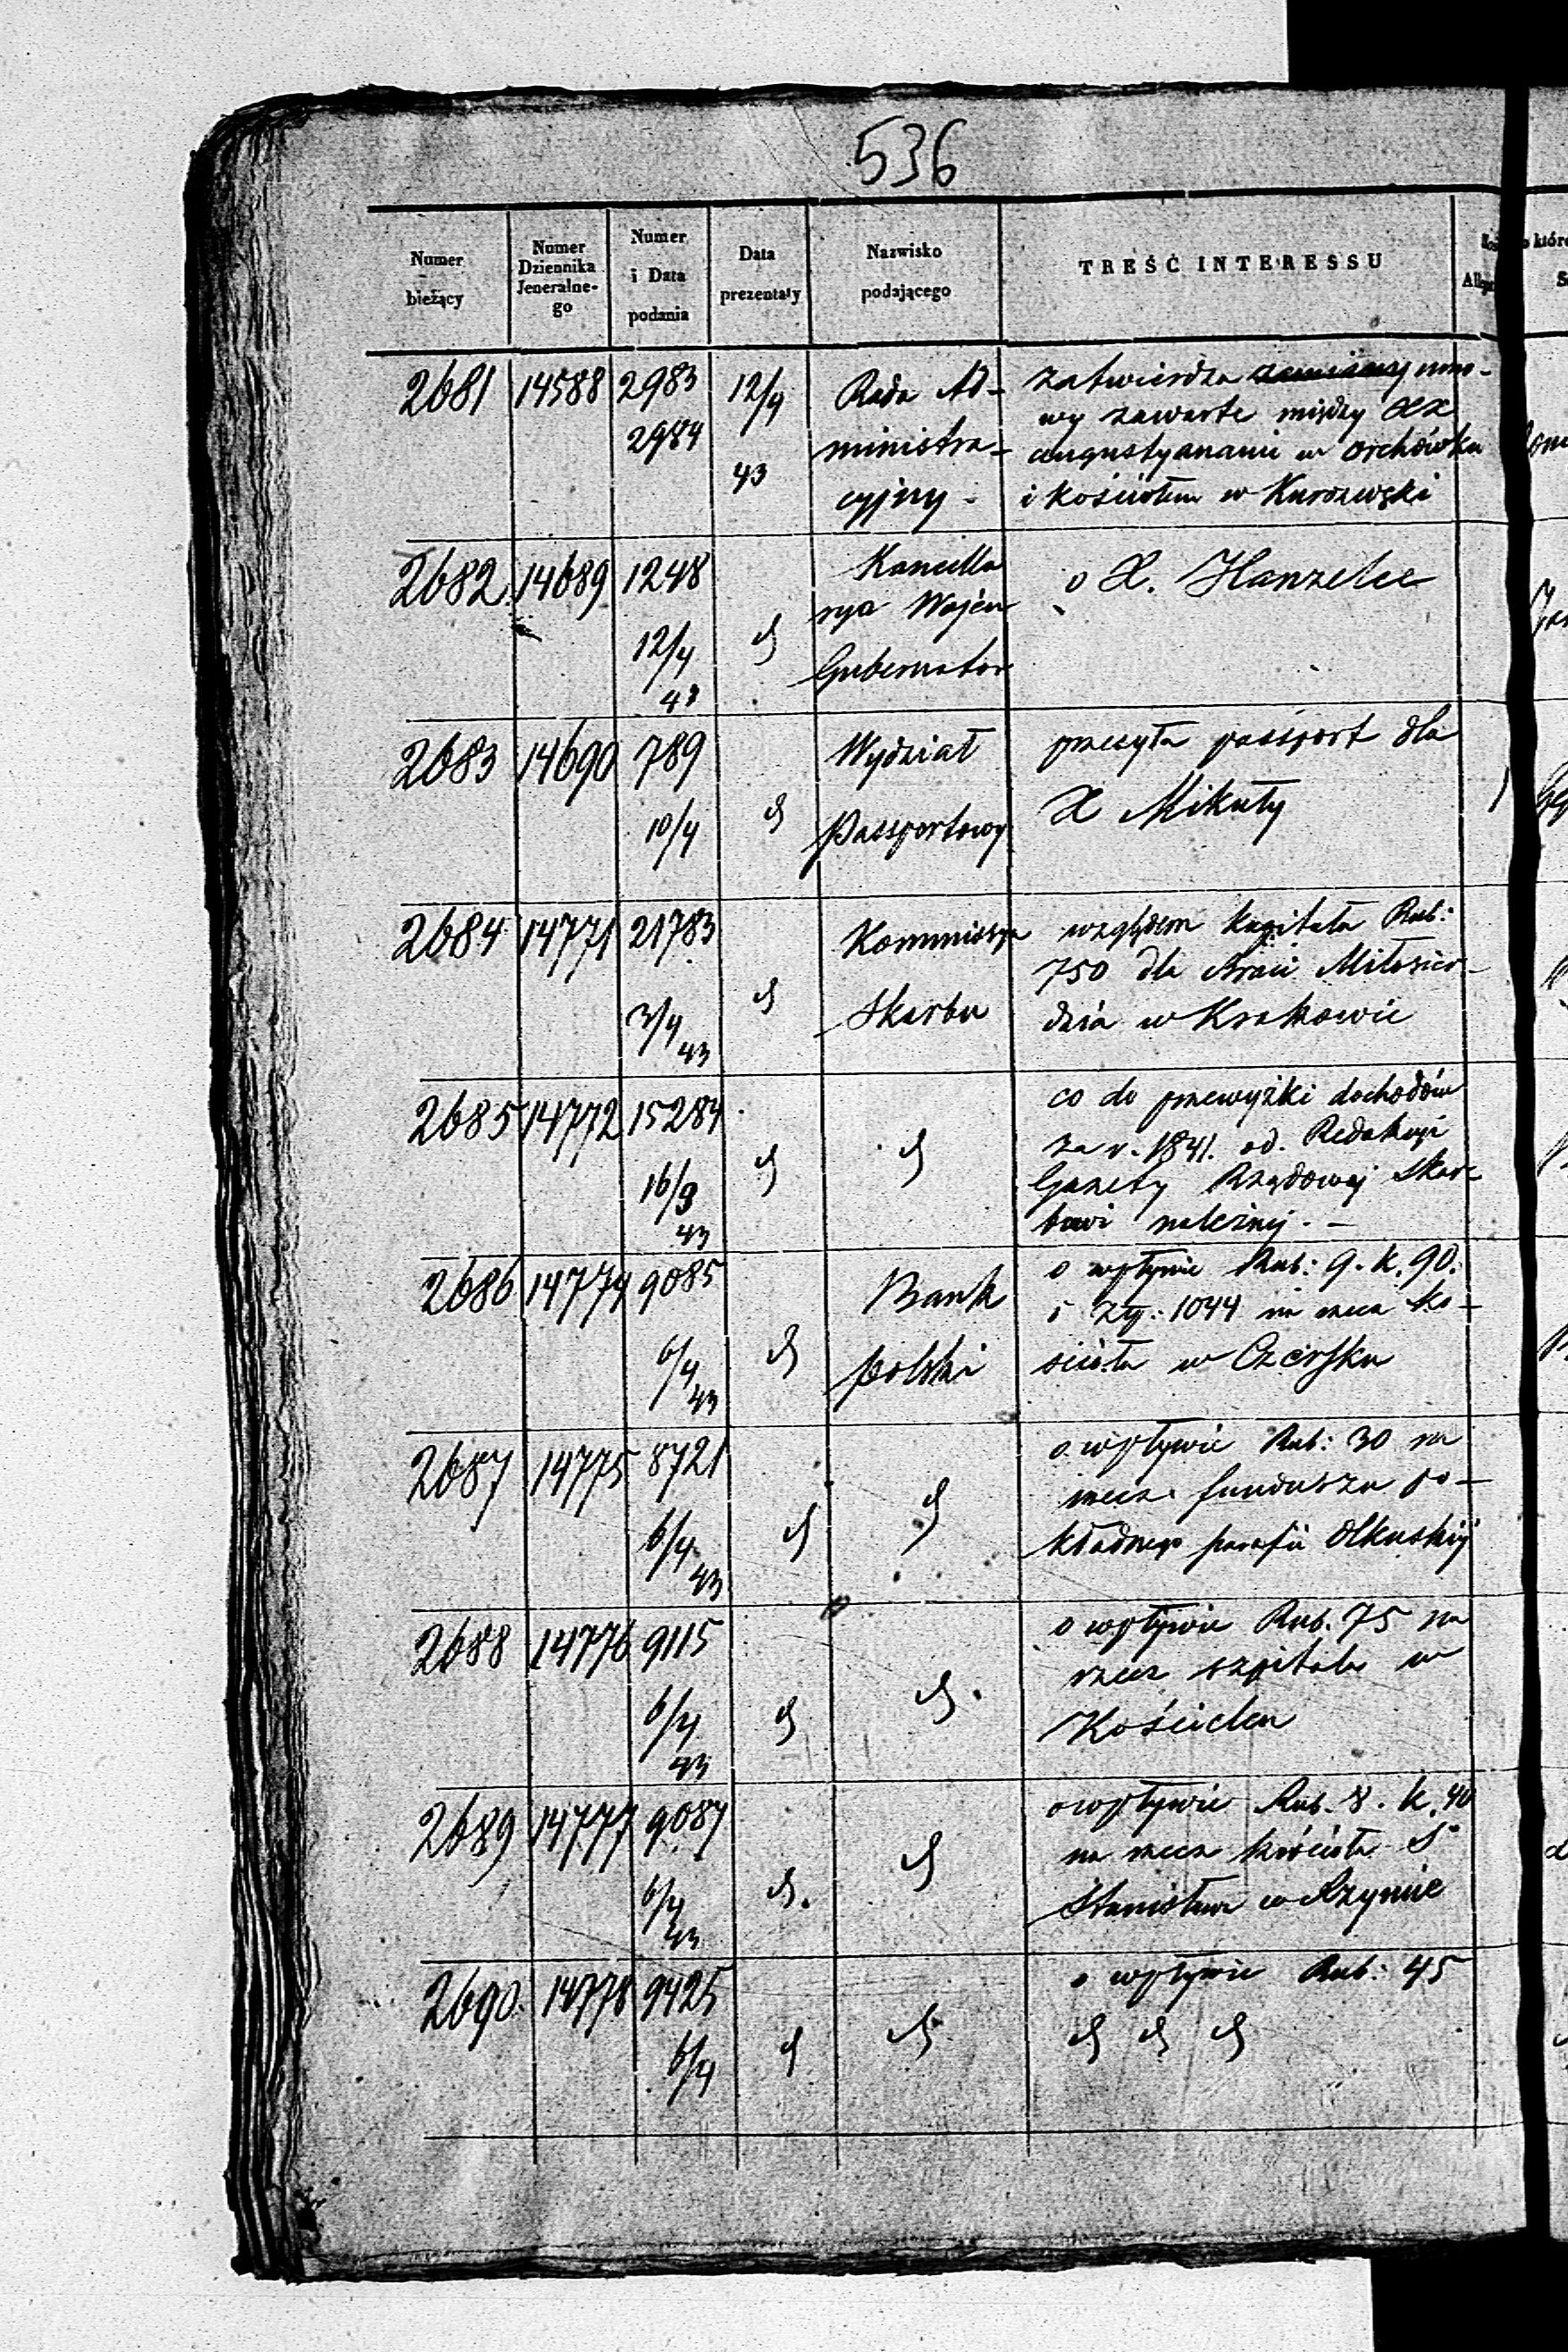 536
Numer bieżący
Numer Dziennika Jeneralne-go
Numer i Data podania
Data prezentaty
Nazwisko podającego
TREŚĆ INTERESSU
2681 14588 2983 12/4 Rada Ad- zatwierdza umo-
2984 wy zawarte między XX
43 ministra- augustyanami w Orchówku
cyjny - i kościołem w
2682 14689 1248 Kancella o X. Hanzelce
rya Wojen
12/4 d
43 Gubernator
2683 14690 789 Wydział przesyła passport dla
10/4 d Passportowy X Mikuły
2684 14771 21783 Kommissya względem kapitału Rub:
750 dla Braci Miłosier-
3/4 43 d Skarbu dzia w Krakowie
2685 14772 15284 co do przewyżki dochodów
d d za r. 1841. od. Redakcyi
16/3 Gazety Rządowej Skar-
43 bowi należnej. -
2686 14774 9085 Bank o wpływie Rub: 9. k. 90.
i Złp: 1044 na rzecz ko-
6/4 43 d polski ścioła w Czersku
2687 14775 8721 o wpływie Rub: 30 na
d rzecz funduszu po-
6/4 43 d kładnego parafii Olkuskiej
2688 14776 9115 o wpływie Rub. 75 na
d. rzecz szpitala w
6/4 43 d Kościelcu
2689 14777 9087 o wpływie Rub. 8. k. 40
d na rzecz kościoła S
6/4 43 d. Stanisława w Rzymie
2690. 14778 9425 o wpływie Rub: 45
6/4 d d d d d